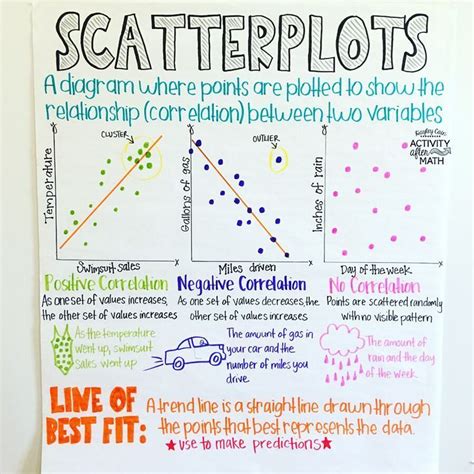 SCATTERPLOTS
A diagram where points are plotted to show the
relationship (correlation) between two variables
ACTIVITY
after
MATH
CLUSTER
OUTLIER
Temperature
Swimsuit sales
Gallons of gas
Miles driven
Inches of rain
Day of the week
Positive Correlation
As one set of values increases,
the other set of values increases
Negative Correlation
As one set of values decreases, the
other set of values increases
No Correlation
Points are scattered randomly
with no visible pattern
As the temperature
went up, swimsuit
sales went up
The amount of gas in
your car and the
number of miles you
drive.
The amount of
rain and the day
of the week
LINE OF
BEST FIT:
A trend line is a straight line drawn through
the points that best represents the data.
★use to make predictions★